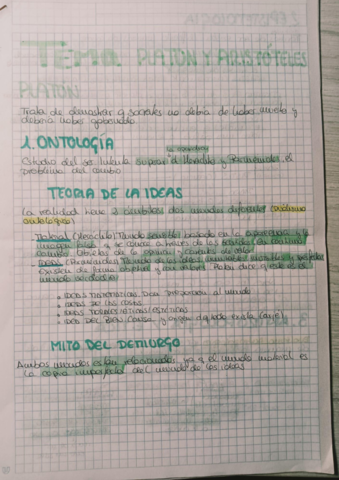 TEMA PLATÓN Y ARISTÓTELES
PLATÓN
Trata de demostrar q Sócrates no debía de haber muerto y
debería haber gobernado.
1. ONTOLOGÍA
Estudio del ser. Intenta superar a Heráclito y Parménides, el
problema del cambio
TEORIA DE LA IDEAS
La realidad tiene 2 ámbitos dos mundos diferentes (Dualismo
ontológico)
(Heráclito) Mundo sensible basado en la experiencia y la
y se conoce a través de los sentidos.
cambio. de la opinión y
Ideas (Parménides) Mundo
Existen de forma objetiva y Platón dice q este es el
mundo verdadero
IDEAS MATEMÁTICAS Dan al mundo
IDEAS DE LAS COSAS
IDEAS MORALES (ÉTICAS/ESTÉTICAS)
IDEA DEL BIEN Causa y origen de todo
MITO DEL DEMIURGO
Ambos mundos están relacionados ya q el mundo material es
la copia imperfecta del mundo de las ideas